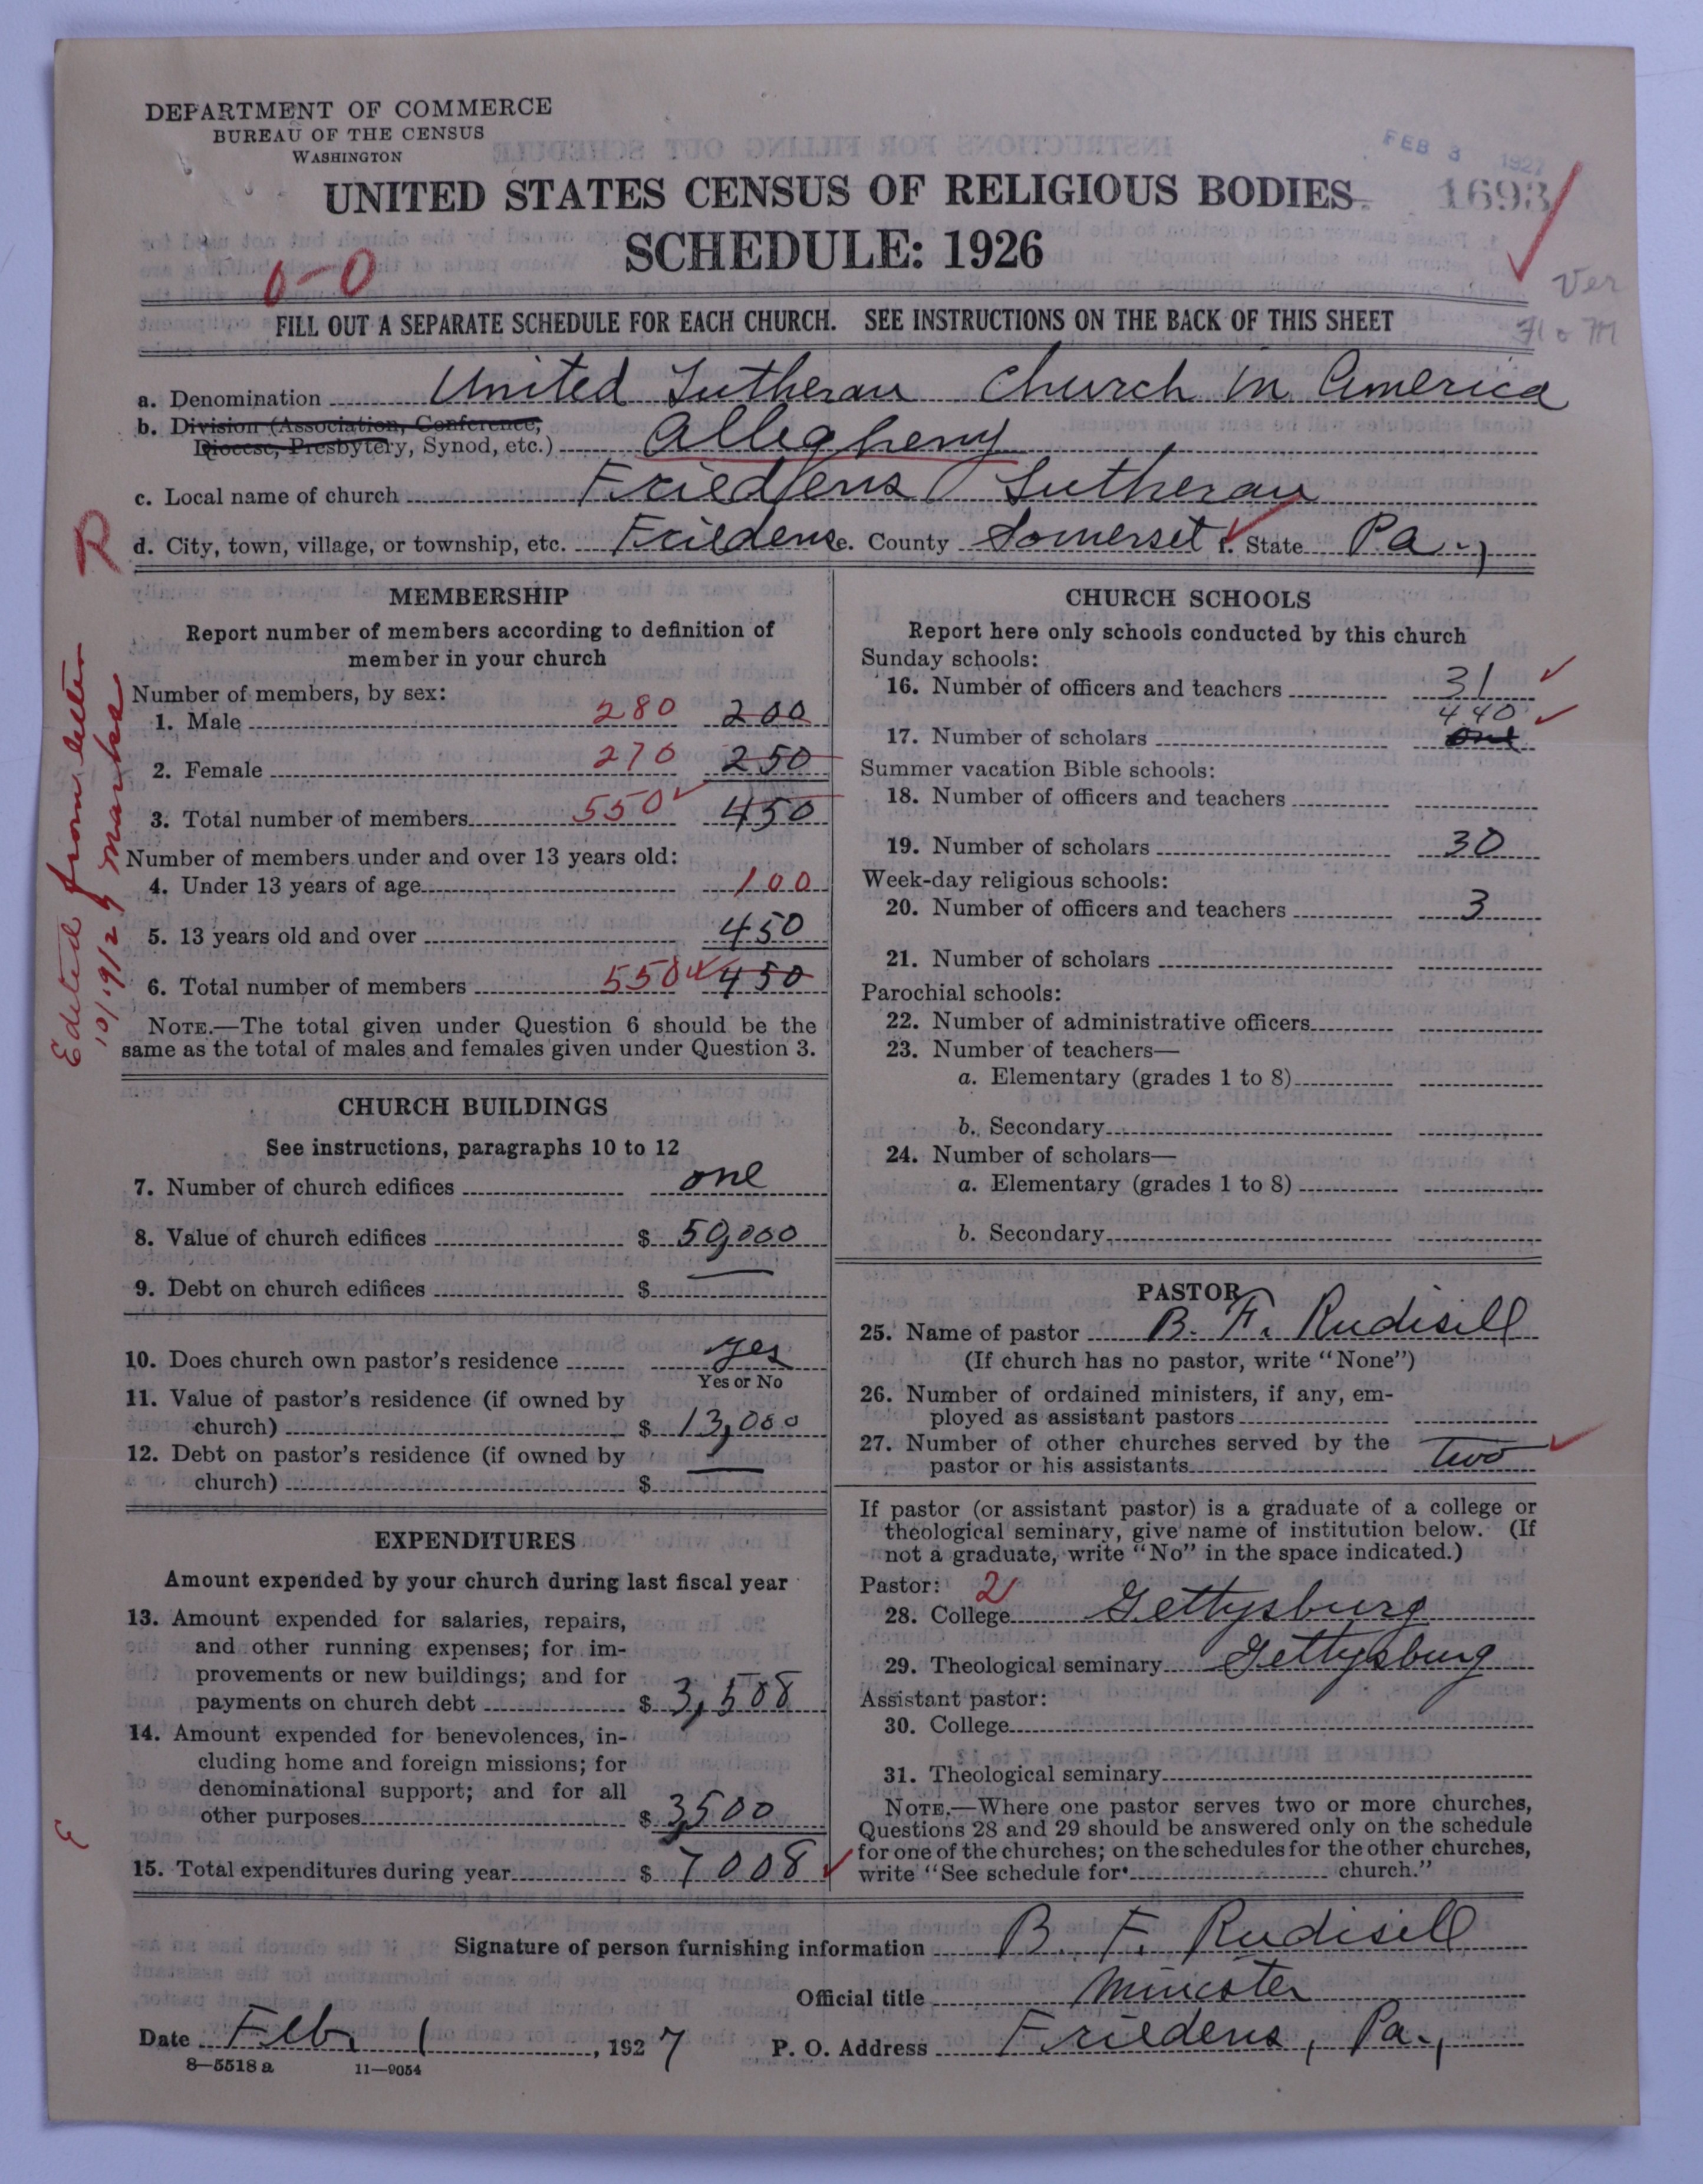 DEPARTMENT OF COMMERCE
BUREAU OF THE CENSUS
WASHINGTON
FEB 3 1927
1693
UNITED STATES CENSUS OF RELIGIOUS BODIES
SCHEDULE: 1926
0-0
Ver
FILL OUT A SEPARATE SCHEDULE FOR EACH CHURCH. SEE INSTRUCTIONS ON THE BACK OF THIS SHEET
a. Denomination United Lutheran Church in America
b. Division (Association, Conference,
Diocese, Presbytery, Synod, etc.) Allegheny
c. Local name of church Friedens Lutheran
d. City, town, village, or township, etc. Friedens e. County Somerset f. State Pa.,
R
Edited from letter
10/19/27 Marke
MEMBERSHIP
Report number of members according to definition of
member in your church
Number of members, by sex:
1. Male 280 200
2. Female 270 250
3. Total number of members 550 450
Number of members under and over 13 years old:
4. Under 13 years of age 100
5. 13 years old and over 450
6. Total number of members 550 450
NOTE.—The total given under Question 6 should be the
same as the total of males and females given under Question 3.
CHURCH BUILDINGS
See instructions, paragraphs 10 to 12
7. Number of church edifices one
8. Value of church edifices $ 50,000
9. Debt on church edifices $ —
10. Does church own pastor's residence yes
Yes or No
11. Value of pastor's residence (if owned by
church) $ 13,000
12. Debt on pastor's residence (if owned by
church) $ —
EXPENDITURES
Amount expended by your church during last fiscal year
13. Amount expended for salaries, repairs,
and other running expenses; for im-
provements or new buildings; and for
payments on church debt $ 3,508
14. Amount expended for benevolences, in-
cluding home and foreign missions; for
denominational support; and for all
other purposes $ 3500
15. Total expenditures during year $ 7008
CHURCH SCHOOLS
Report here only schools conducted by this church
Sunday schools:
16. Number of officers and teachers 31
440
17. Number of scholars one
Summer vacation Bible schools:
18. Number of officers and teachers
19. Number of scholars 30
Week-day religious schools:
20. Number of officers and teachers 3
21. Number of scholars
Parochial schools:
22. Number of administrative officers
23. Number of teachers—
a. Elementary (grades 1 to 8)
b. Secondary
24. Number of scholars—
a. Elementary (grades 1 to 8)
b. Secondary
PASTOR
25. Name of pastor B. F. Rudisill
(If church has no pastor, write "None")
26. Number of ordained ministers, if any, em-
ployed as assistant pastors
27. Number of other churches served by the
pastor or his assistants two
If pastor (or assistant pastor) is a graduate of a college or
theological seminary, give name of institution below. (If
not a graduate, write "No" in the space indicated.)
Pastor: 2
28. College Gettysburg
29. Theological seminary Gettysburg
Assistant pastor:
30. College
31. Theological seminary
NOTE.—Where one pastor serves two or more churches,
Questions 28 and 29 should be answered only on the schedule
for one of the churches; on the schedules for the other churches,
write "See schedule for church."
Signature of person furnishing information B. F. Rudisill
Official title Minister
Date Feb. 1, 1927 P. O. Address Friedens, Pa.,
8—5518 a 11—9054